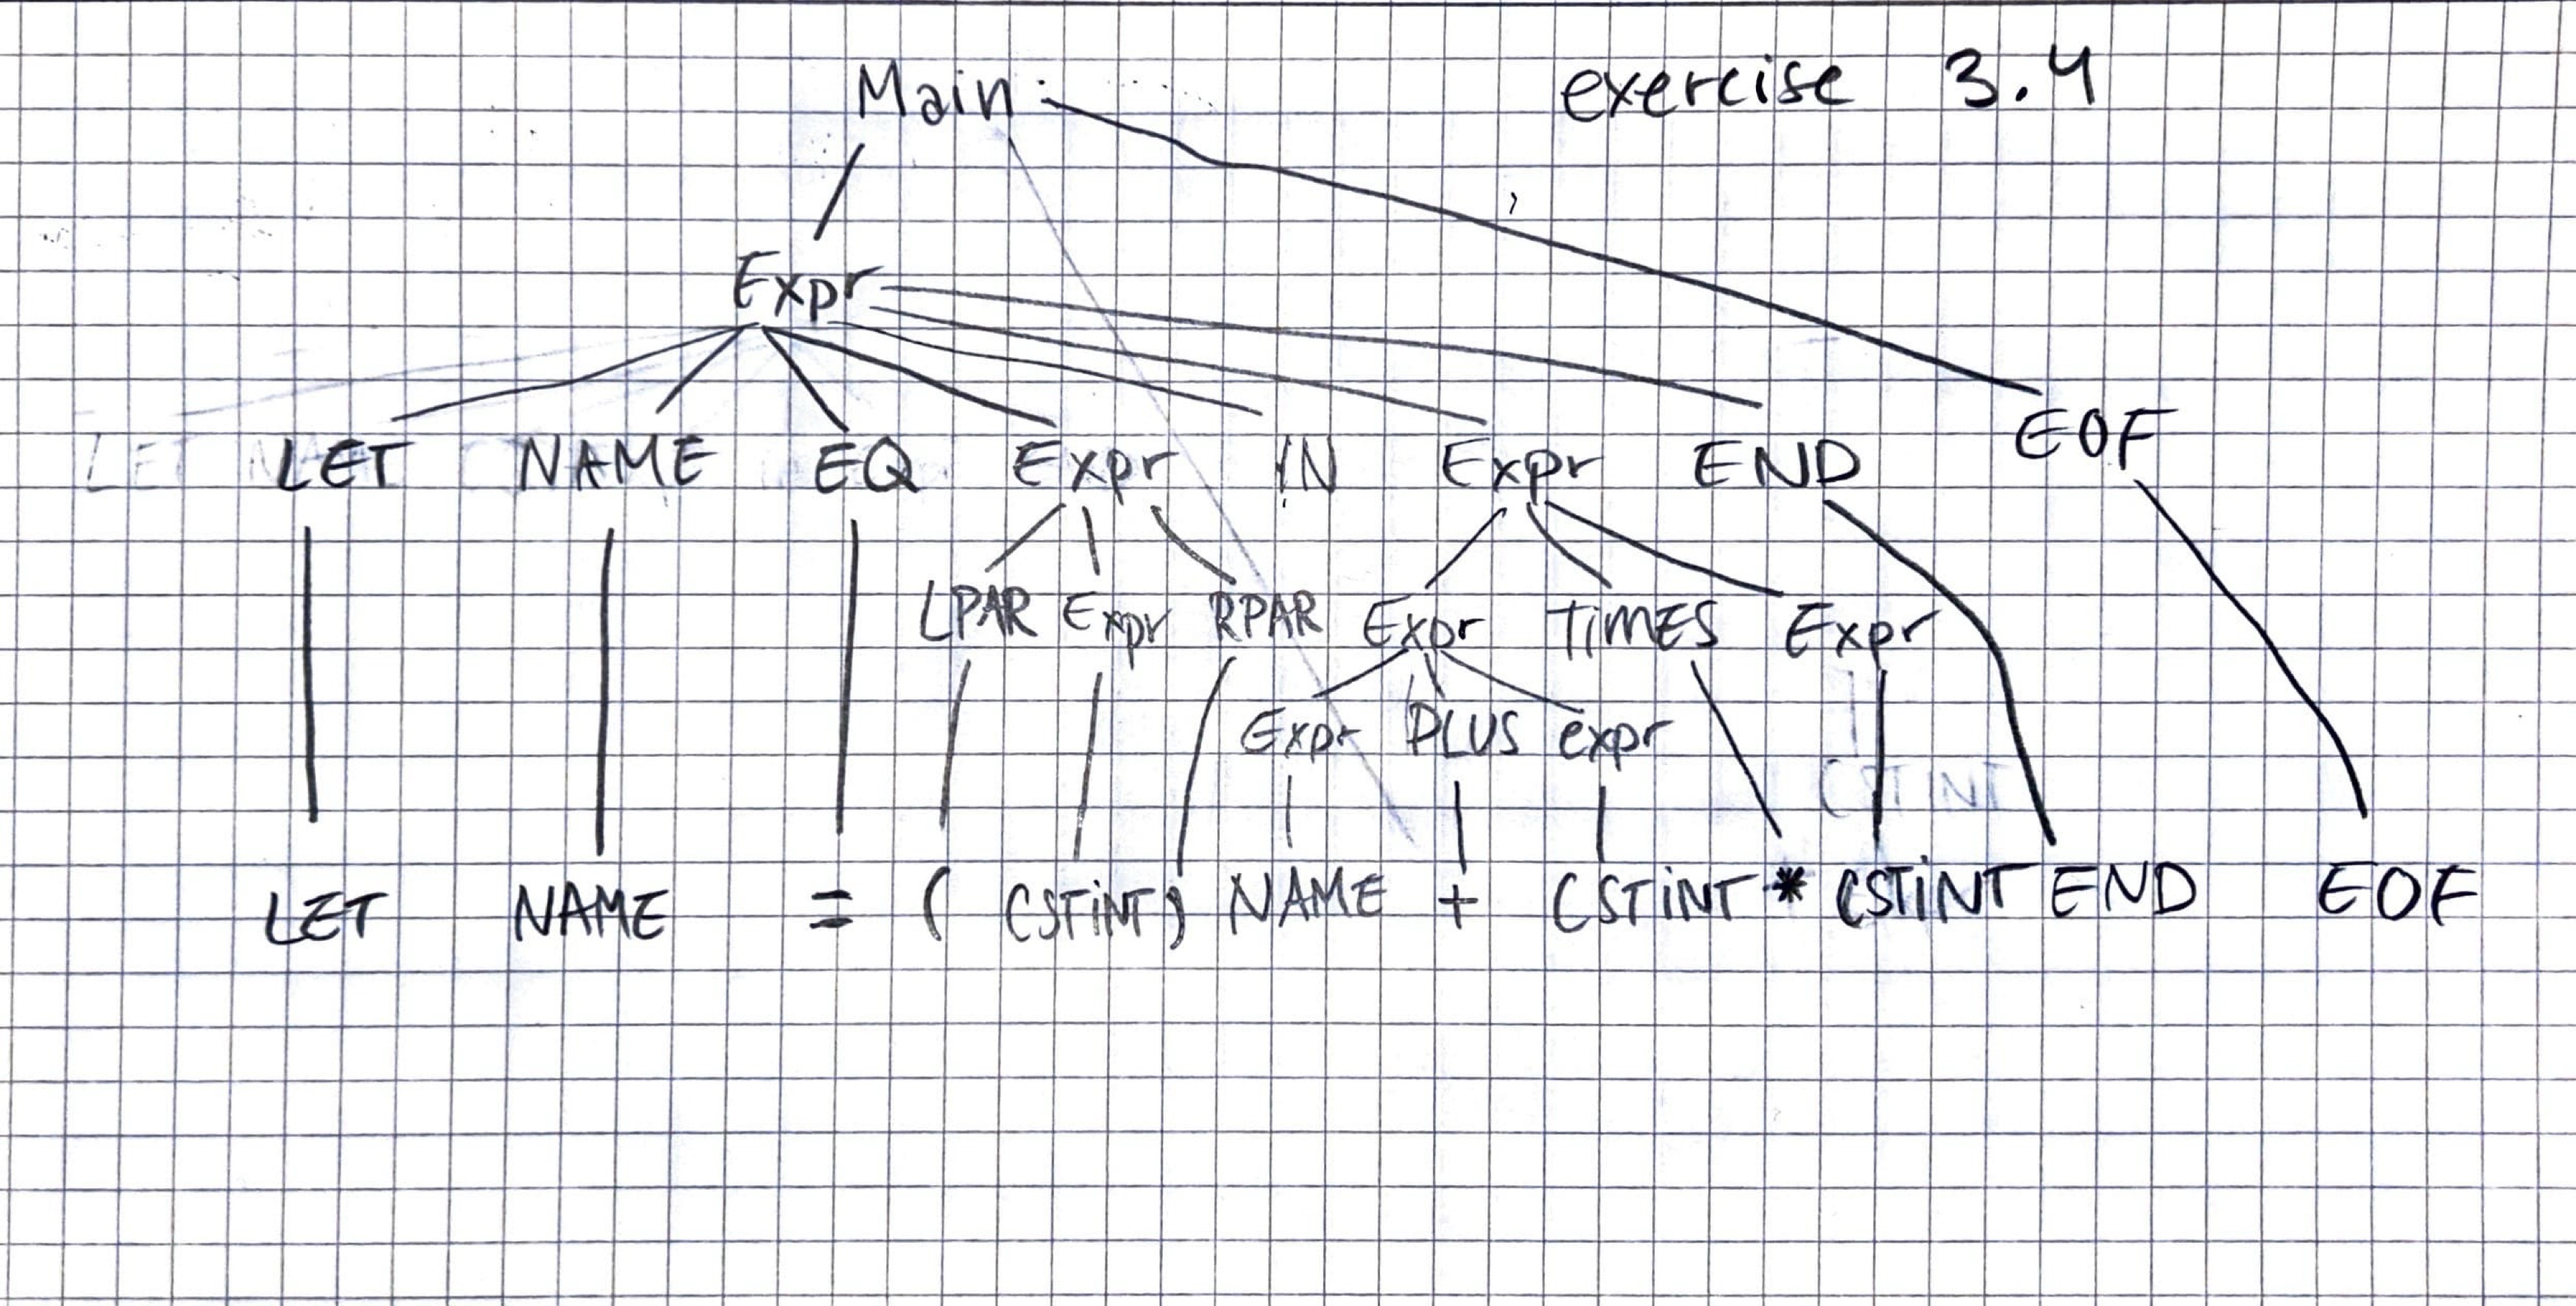 Main exercise 3.4
Expr
LET NAME EQ Expr IN Expr END EOF
LPAR Expr RPAR Expr TIMES Expr
Expr PLUS expr
CSTINT
LET NAME = ( CSTINT) NAME + CSTINT * CSTINT END EOF